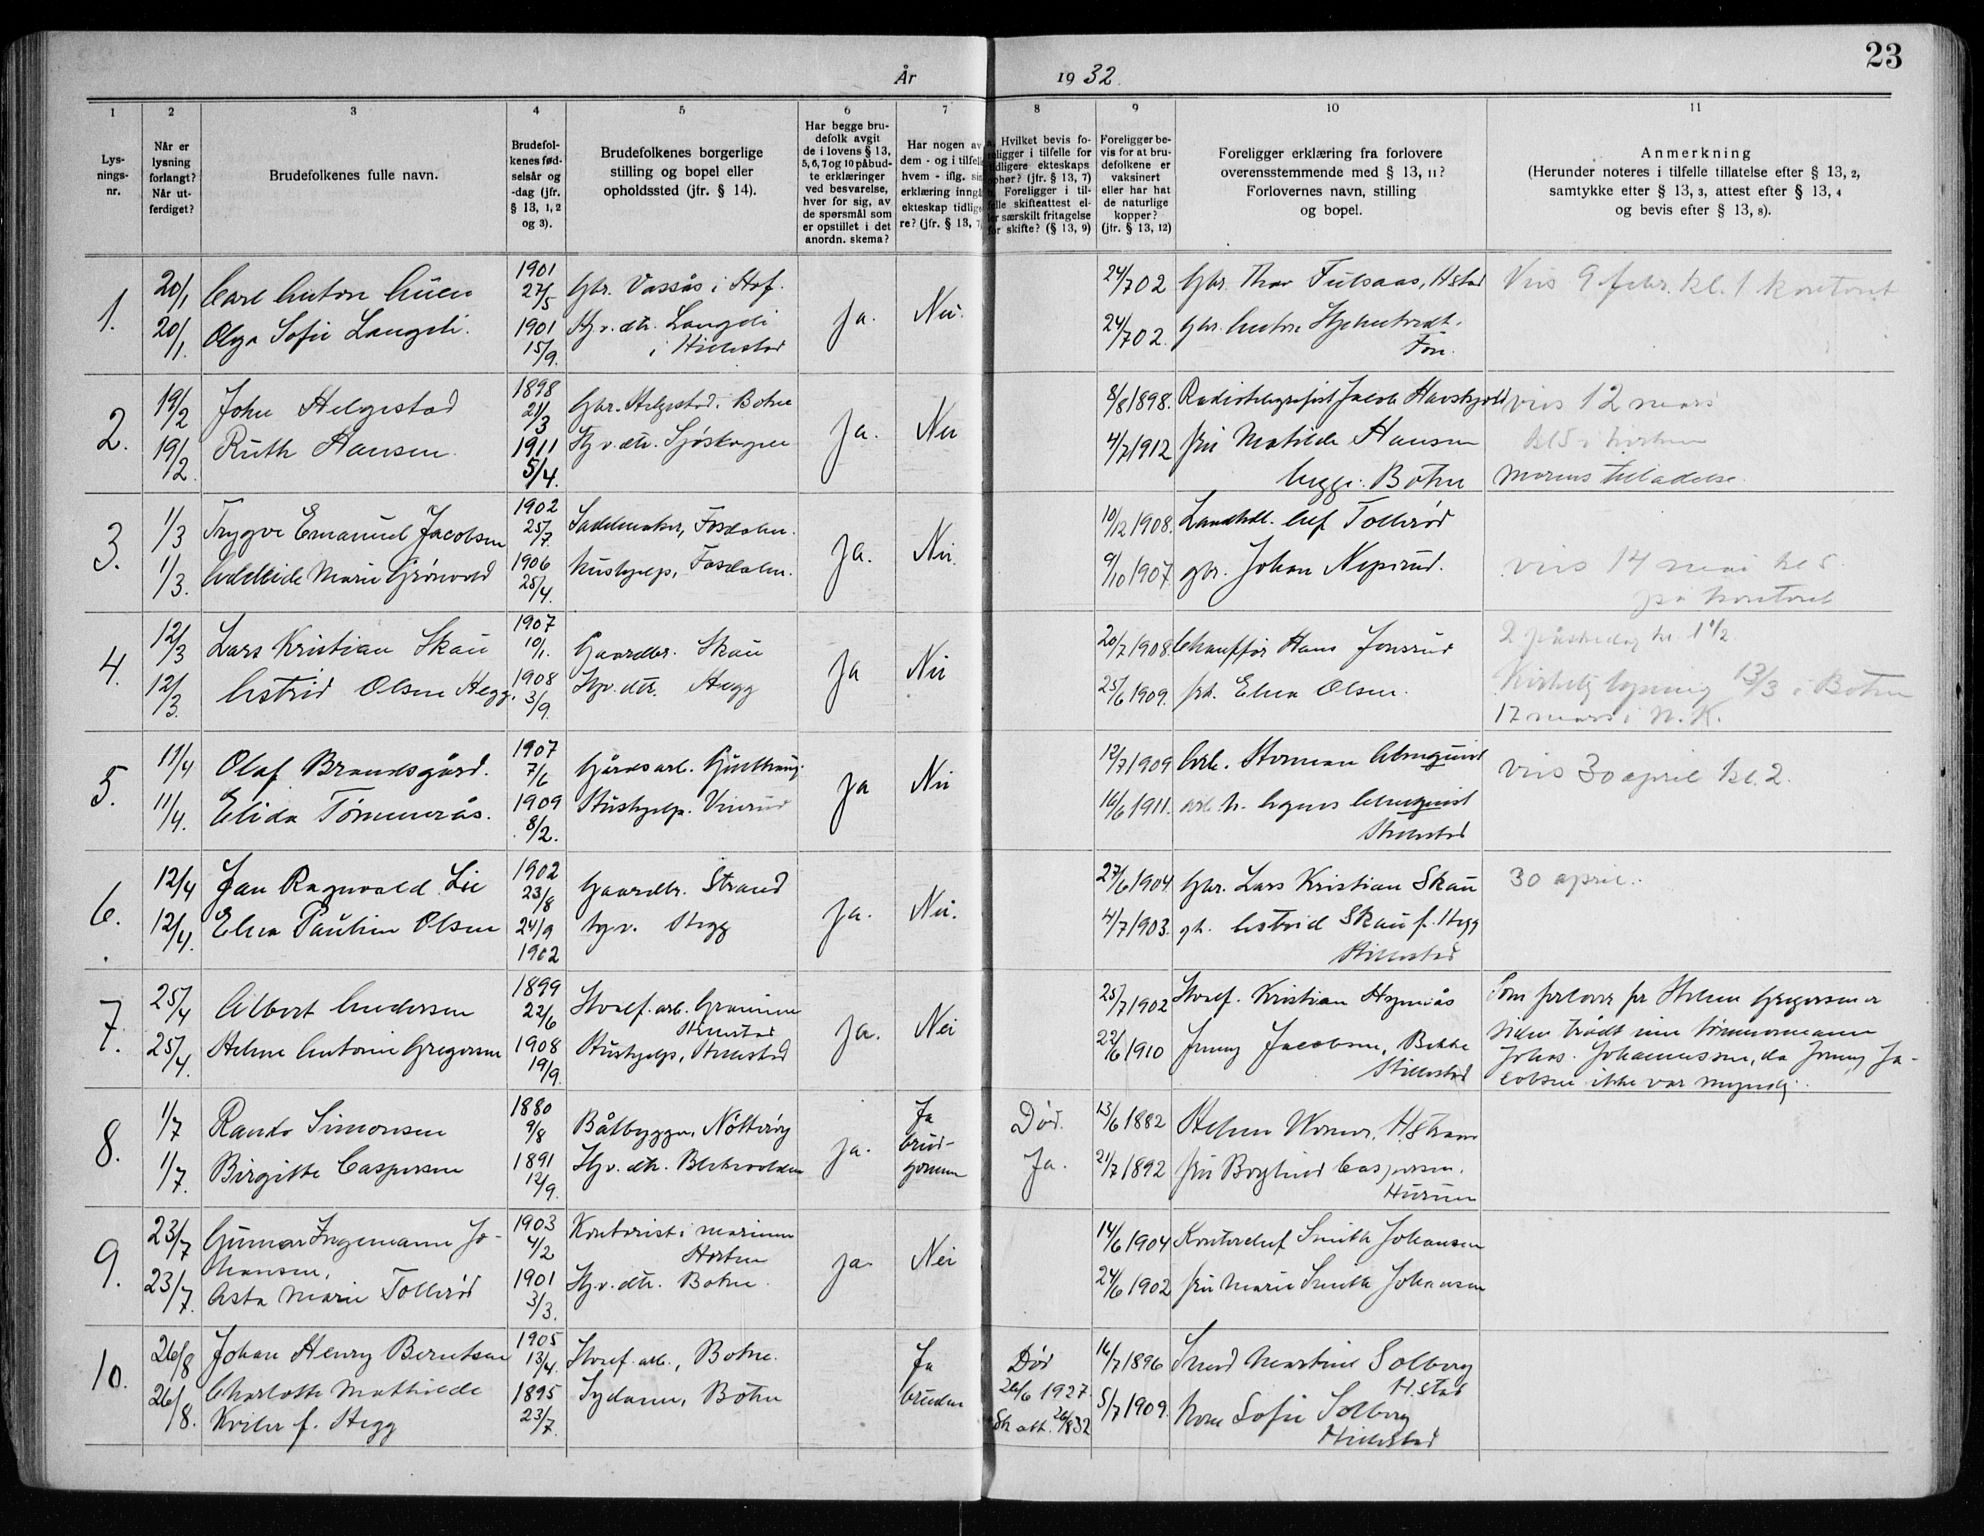 23
År 1932.
1 2 3 4 5 6 7 8 9 10 11
Lys-
nings-
nr.
Når er
lysning
forlangt?
Når ut-
ferdiget?
Brudefolkenes fulle navn.
Brudefol-
kenes fød-
selsår og
-dag (jfr.
§ 13, 1, 2
og 3).
Brudefolkenes borgerlige
stilling og bopel eller
opholdssted (jfr. § 14).
Har begge bru-
defolk avgit
de i lovens § 13,
5, 6, 7 og 10 påbud-
te erklæringer
ved besvarelse,
hver for sig, av
de spørsmål som
er opstillet i det
anordn. skema?
Har nogen av
dem - og i tilfelle
hvem - iflg.
erklæring inngå
ekteskap tidlige-
re? (jfr. § 13, 7
Hvilket bevis fo-
religger i tilfelle for
tidligere ekteskaps
ophør? (jfr. § 13, 7)
Foreligger i til-
felle skifteattest el-
ler særskilt fritagelse
for skifte? (§ 13, 9)
Foreligger be-
vis for at bru-
defolkene er
vaksinert
eller har hat
de naturlige
kopper?
(jfr. § 13, 12)
Foreligger erklæring fra forlovere
overensstemmende med § 13, 11?
Forlovernes navn, stilling
og bopel.
Anmerkning
(Herunder noteres i tilfelle tillatelse efter § 13, 2,
samtykke efter § 13, 3, attest efter § 13, 4
og bevis efter § 13, 8).
1. 20/1 Carl Anton 1901 27/5 Gbr. Vassås i Hof. Ja. Nei. 24/7 02 Gbr. Thor Hstad Viis 9 febr. kl. 1 kontoret
20/1 Olga Sofie Langeli. 1901 15/9. Hjv. dtr. Langeli 24/7 02. Gbr. Anton
i Hillestad Fon.
2. 19/2 John Helgestad 1898 21/3 Gbr. Helgestad, Botne Ja. Nei 8/8 1898. Radiotelegrafist Jacob viis 12 mars
19/2 Ruth Hansen. 1911 5/4. Hjv. dtr. Sjøskogen 4/7 1912 fru Matilde Hansen kl 5 i kirken
begge: Botne morens tilladelse.
3. 1/3 Trygve Emanuel Jacobsen 1902 25/7. Sadelmaker, Fosdalen. Ja. Nei. 10/12 1908. Landhdl. Tollerød
1/3. Marie Grönvold 1906 25/4. Hushjelp, Fosdalen. 9/10 1907 gbr. Johan viis 14 mai kl 5
på kontoret
4. 12/3 Lars Kristian Skau 1907 10/1. Gaardbr. Skau Ja Nei 20/7 1908 Chauffør Hans Jonsrud 2 påskedag kl. 1 1/2
12/3. Astrid Olsen Hegg. 1908 3/9. Hjv. dtr. Hegg 25/6 1909. frk. Elna Olsen. Kirkelig lysning 13/3 i Botne
17 mars i N. K.
5. 11/4 Olaf Brandsgård. 1907 7/6 Gårdsarb. Ja Nei 12/7 1909 Arb. Herman Almquist viis 30 april kl. 2.
11/4. Elida Tømmerås. 1909 8/2. Hushjelp. Vinrud 16/6 1911. arb. h. Agnes Almquist
Hillestad
6. 12/4 Jan Ragnvald Lie 1902 23/8 Gaardbr. Strand Ja. Nei. 27/6 1904 Gbr. Lars Kristian Skau 30 april.
12/4. Elna Pauline Olsen 24/9 1902 hjv. Hegg 4/7 1903. gh. Astrid Skau f. Hegg
Hillestad
7. 25/4 Albert Andersen 1899 22/6 Hvalf. arb. Ja. Nei 25/7 1902 Hvalf. Kristian Som forlover for Helene Gregersen er
Hillestad siden trådt inn tømmermann
25/4. Helene Antonie Gregersen 1908 19/9. Hushjelp, Hillestad 22/6 1910 Jenny Jacobsen, Bakke Johas. Johannessen, da Jenny Ja-
Hillestad cobsen ikke var myndig.
8. 1/7 Simonsen 1880 9/8 Båtbygger, Nøtterøy Ja. Ja Død. 13/6 1882 Helene
brud-
1/7. Birgitte Caspersen 1891 12/9. Hjv. dtr. gommen Ja. 21/7 1892 fru Caspersen,
Hurum
9. 23/7 Gunnar Ingemann Jo- 1903 4/2 Kontorist i marinen Ja. Nei 14/6 1904 Kontorchef Smith Johansen
hansen, Horten
23/7. Asta Marie Tollerød 1901 3/3. Hjv. dtr. Botne. 24/6 1902 fru Marie Smith Johansen
10. 26/8 Johan Henry Berntsen 1905 13/4. Hvalf. arb., Botne. Ja Død 16/7 1896 Smed Martin Solberg
H.stad
26/8. Charlotte Mathilde 1895 23/7. Sydame, Botne bruden 26/6 1927. 5/7 1909. Kone Sofie Solberg
f. Hegg Sk att. 26/8 32 Hillestad